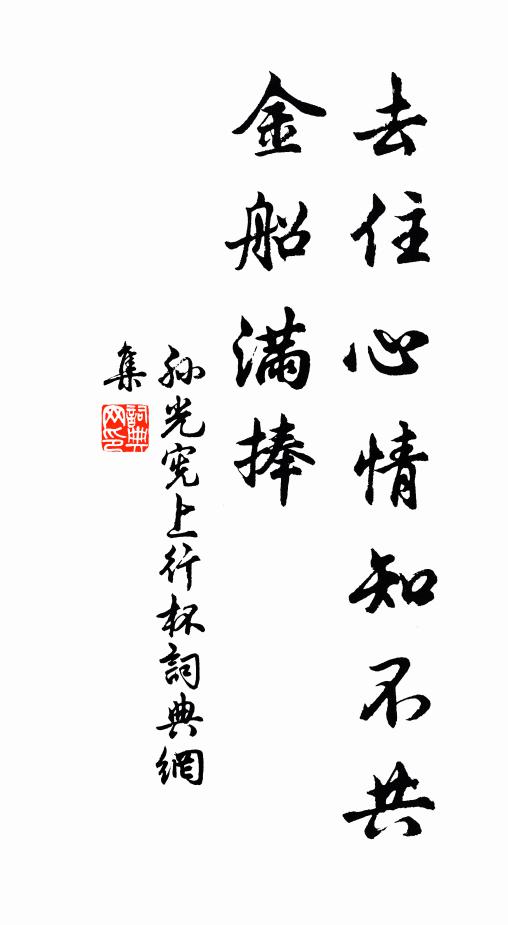 去住心情知不共
金船满捧
孙光宪上行杯詞典網
集
詞典
网印